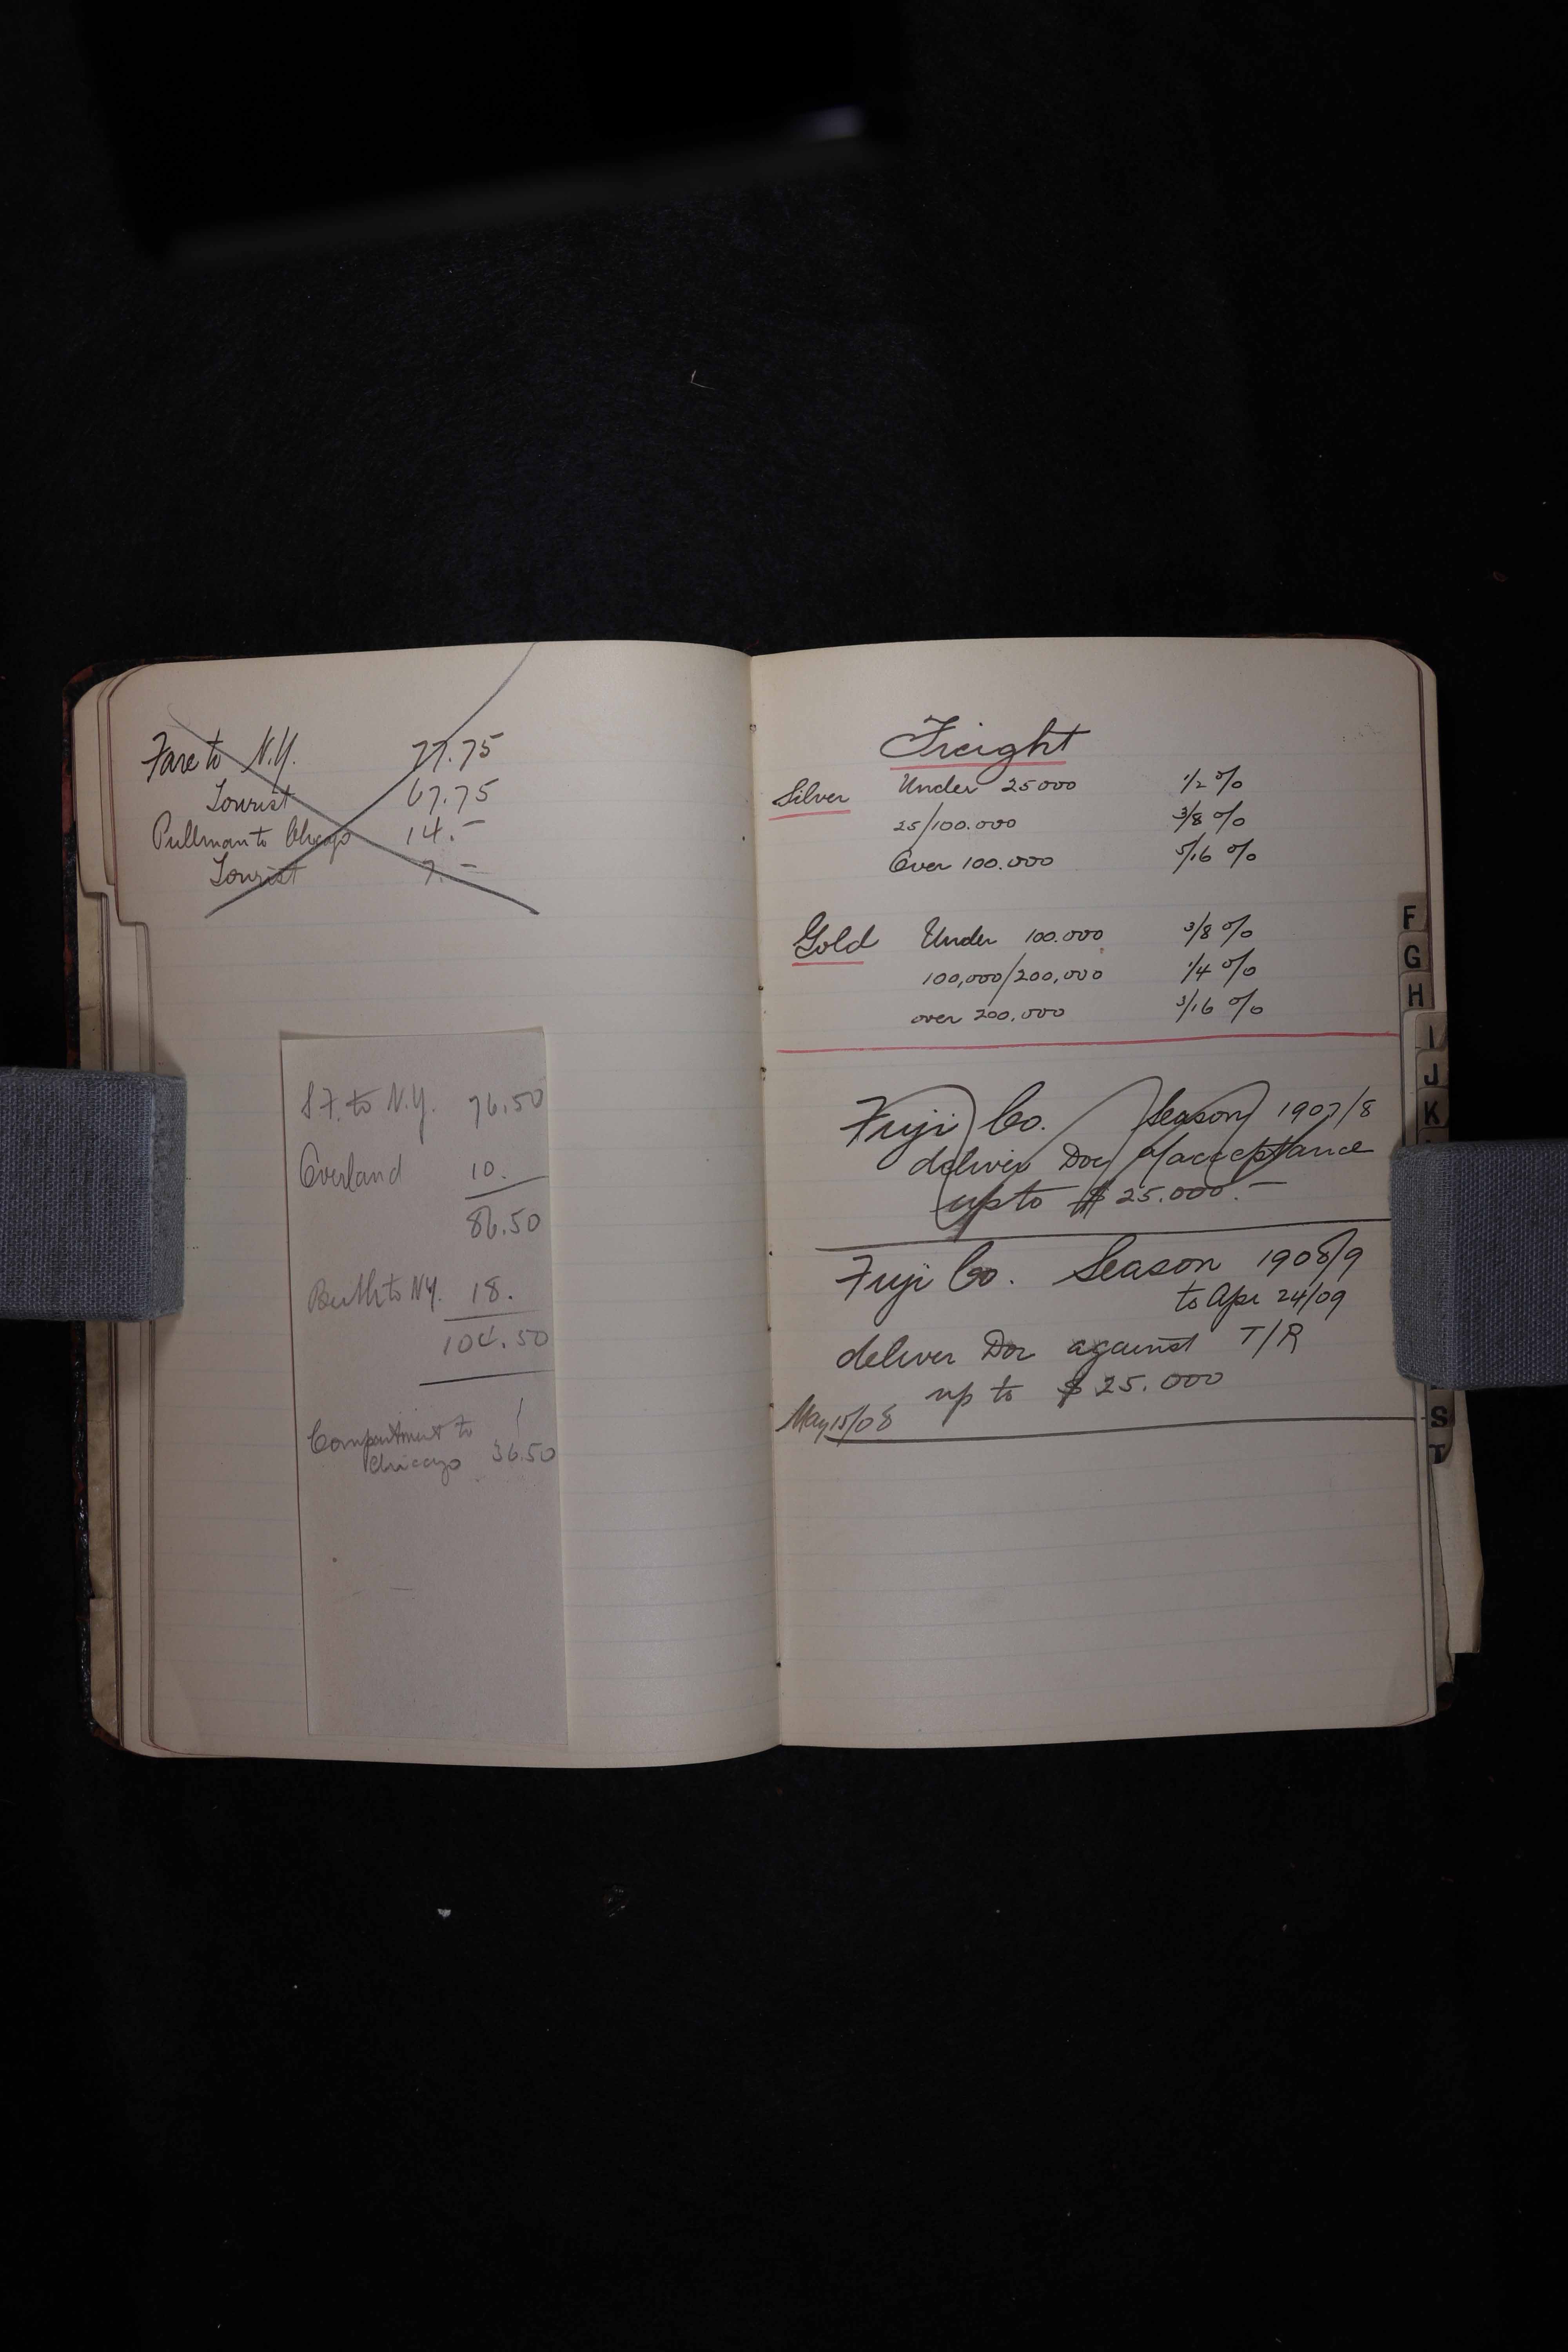 Fare to N.Y. 77.75
Tourist 67.75
Pullman to Chicago 14.–
Tourist 7.–
S.F. to N.Y. 76.50
Overland 10.
86.50
Berth to NY. 18.
104.50
Compartment to
Chicago 36.50
Freight
Silver Under 25000 1/2 %
25/100.000 3/8 %
Over 100.000 5/16 %
Gold Under 100.000 3/8 %
100,000/200,000 1/4 %
over 200,000 3/16 %
Fuji Co. Season 1907/8
deliver Doc acceptance
up to $ 25.000.–
Fuji Co. Season 1908/9
to Apr 24/09
deliver Doc against T/R
up to $ 25.000
May 15/08
F
G
H
I
J
K
S
T